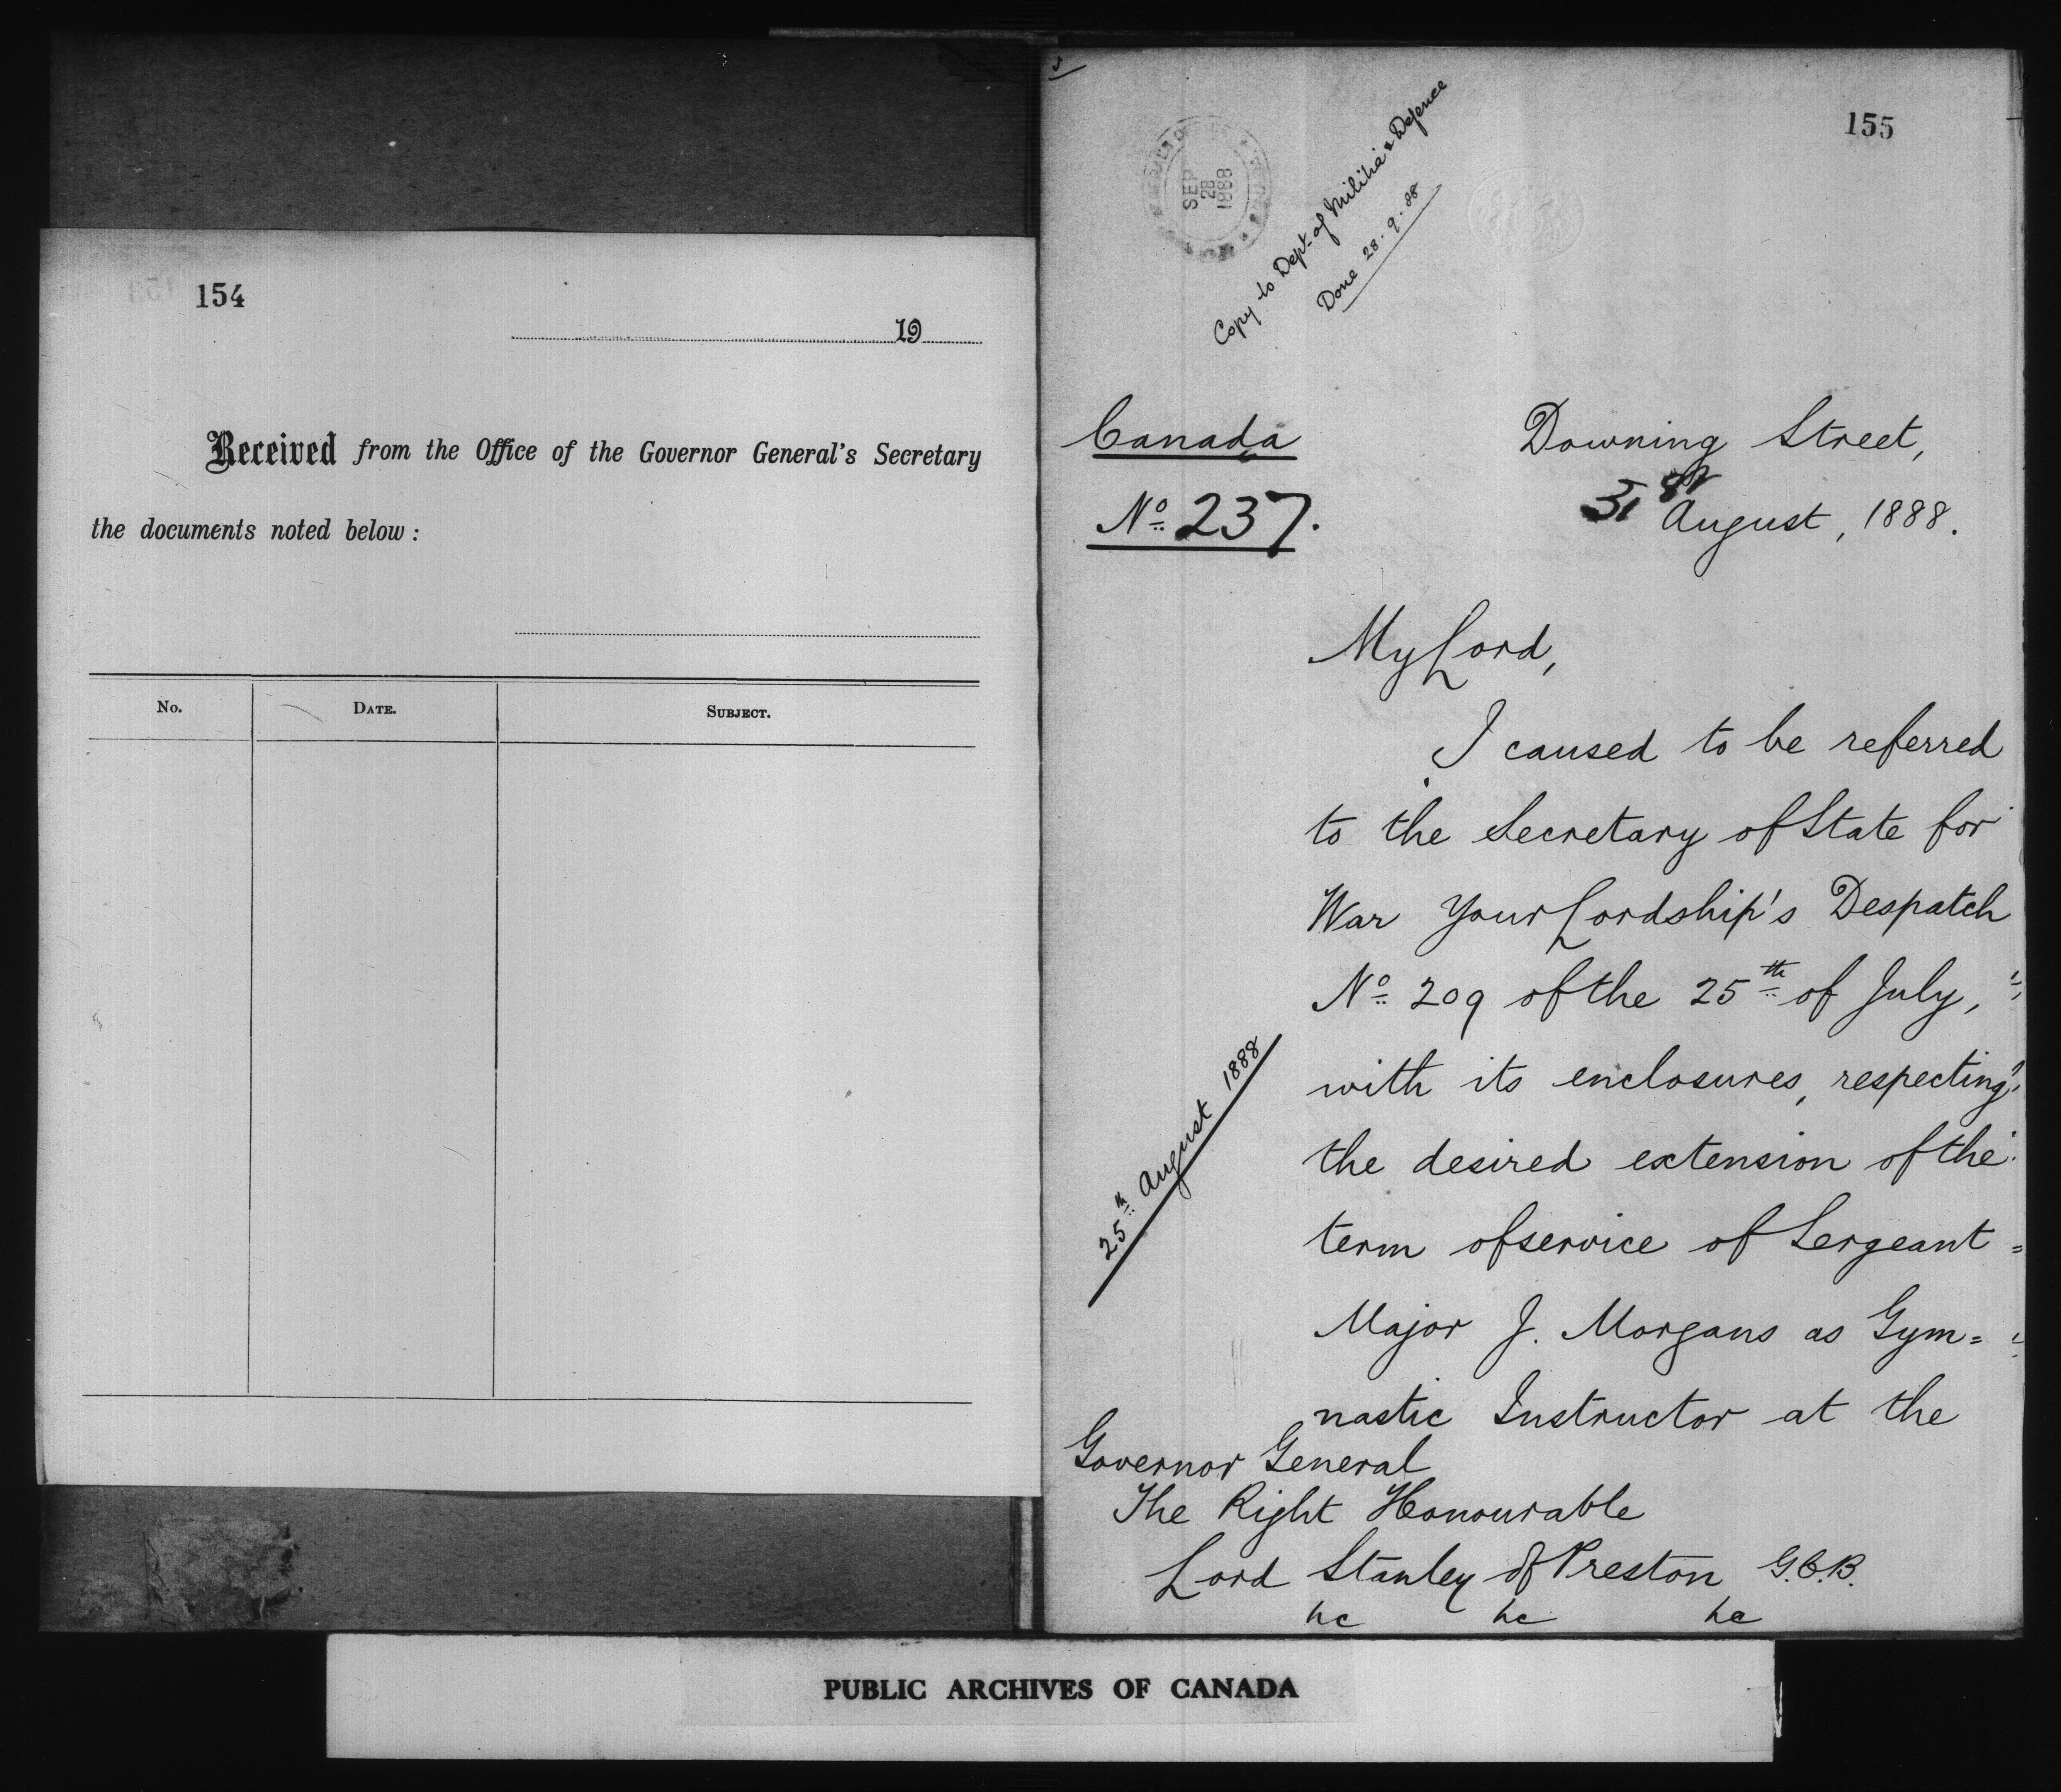 154
19
Received from the Office of the Governor General's Secretary
the documents noted below :
No. DATE. SUBJECT.
155
SEP
28
1888
Copy to Dept. of Militia & Defence
Done 28.9.88
Canada
No. 237.
Downing Street,
31st August, 1888.
My Lord,
I caused to be referred
to the Secretary of State for
War Your Lordship's Despatch
No. 209 of the 25th of July,
with its enclosures, respecting
the desired extension of the
term of service of Sergeant =
Major J. Morgans as Gym=
nastic Instructor at the
25th August 1888
Governor General
The Right Honourable
Lord Stanley of Preston G.C.B.
&c &c &c
PUBLIC ARCHIVES OF CANADA